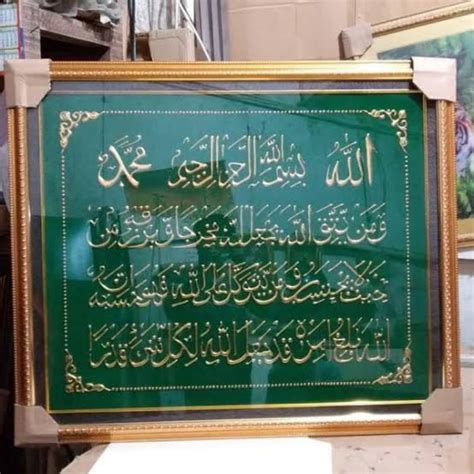 الله بسم الله الرحمن الرحيم محمد
ومن يتق الله يجعل له مخرجا ويرزقه من
حيث لا يحتسب ومن يتوكل على الله فهو حسبه ان
الله بالغ امره قد جعل الله لكل شئ قدرا